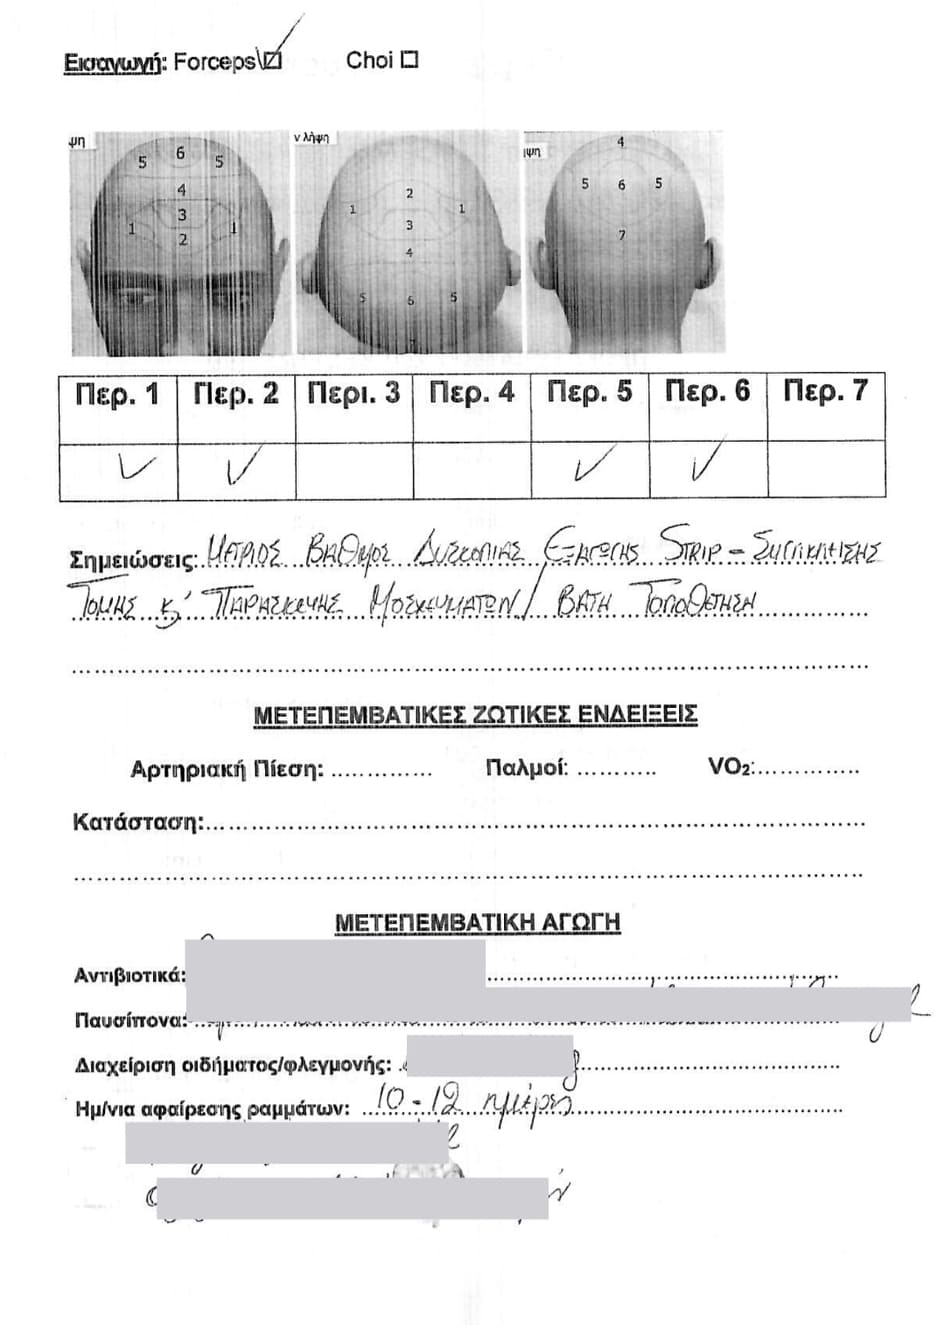 Εισαγωγή: Forceps Choi
ψη ν λήψη ιψη
6 5 5 4 3 1 1 2
2 1 1 3 4 5 6 5
4 5 6 5 7
Περ. 1 Περ. 2 Περι. 3 Περ. 4 Περ. 5 Περ. 6 Περ. 7
✓ ✓ ✓ ✓
Σημειώσεις: ΜΕΤΡΙΟΣ ΒΑΘΜΟΣ ΔΥΣΚΟΛΙΑΣ ΕΞΑΓΩΓΗΣ STRIP – ΣΥΓΚΛΗΣΗΣ
ΤΟΜΗΣ Κ' ΠΑΡΑΣΚΕΥΗΣ ΜΟΣΧΕΥΜΑΤΩΝ / ΒΑΤΗ ΤΟΠΟΘΕΤΗΣΗ
ΜΕΤΕΠΕΜΒΑΤΙΚΕΣ ΖΩΤΙΚΕΣ ΕΝΔΕΙΞΕΙΣ
Αρτηριακή Πίεση: Παλμοί: VO₂:
Κατάσταση:
ΜΕΤΕΠΕΜΒΑΤΙΚΗ ΑΓΩΓΗ
Αντιβιοτικά:
Παυσίπονα:
Διαχείριση οιδήματος/φλεγμονής:
Ημ/νια αφαίρεσης ραμμάτων: 10 - 12 ημέρες